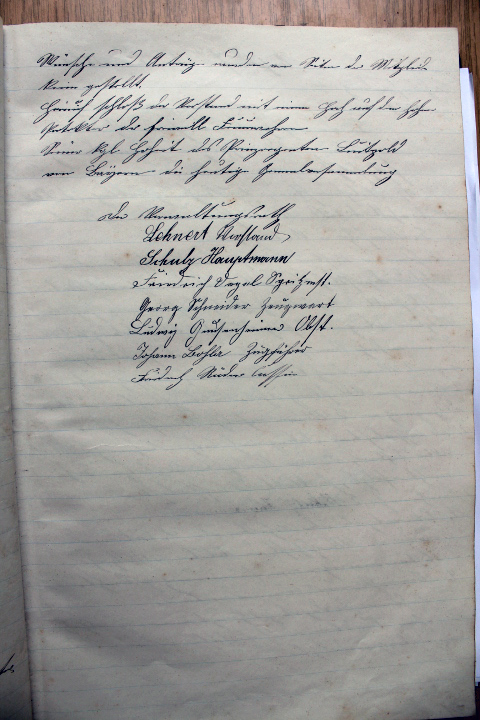 Wünsche und Anträge wurden von Seiten der Mitglieder
keine gestellt.
Hierauf schloß der Vorstand mit einem Hoch auf den hohen
Protektor der freiwill. Feuerwehren
Seiner kgl. Hoheit des Prinzregenten Luitpold
von Bayern die heutige Generalversammlung
Der Verwaltungsrath
Lehnert Vorstand
Schulz Hauptmann
Friedrich Spritzmst.
Georg Schneider Zeugwart
Ludwig Obst.
Johann Bohler Zugführer
Friedrich